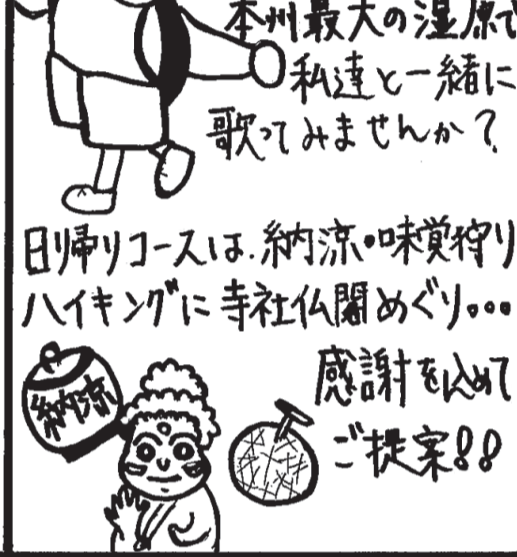 本州最大の湿原で
私達と一緒に
歌ってみませんか？
日帰りコースは、納涼・味覚狩り
ハイキングに寺社仏閣めぐり・・・
感謝を込めて
ご提案！！
納涼